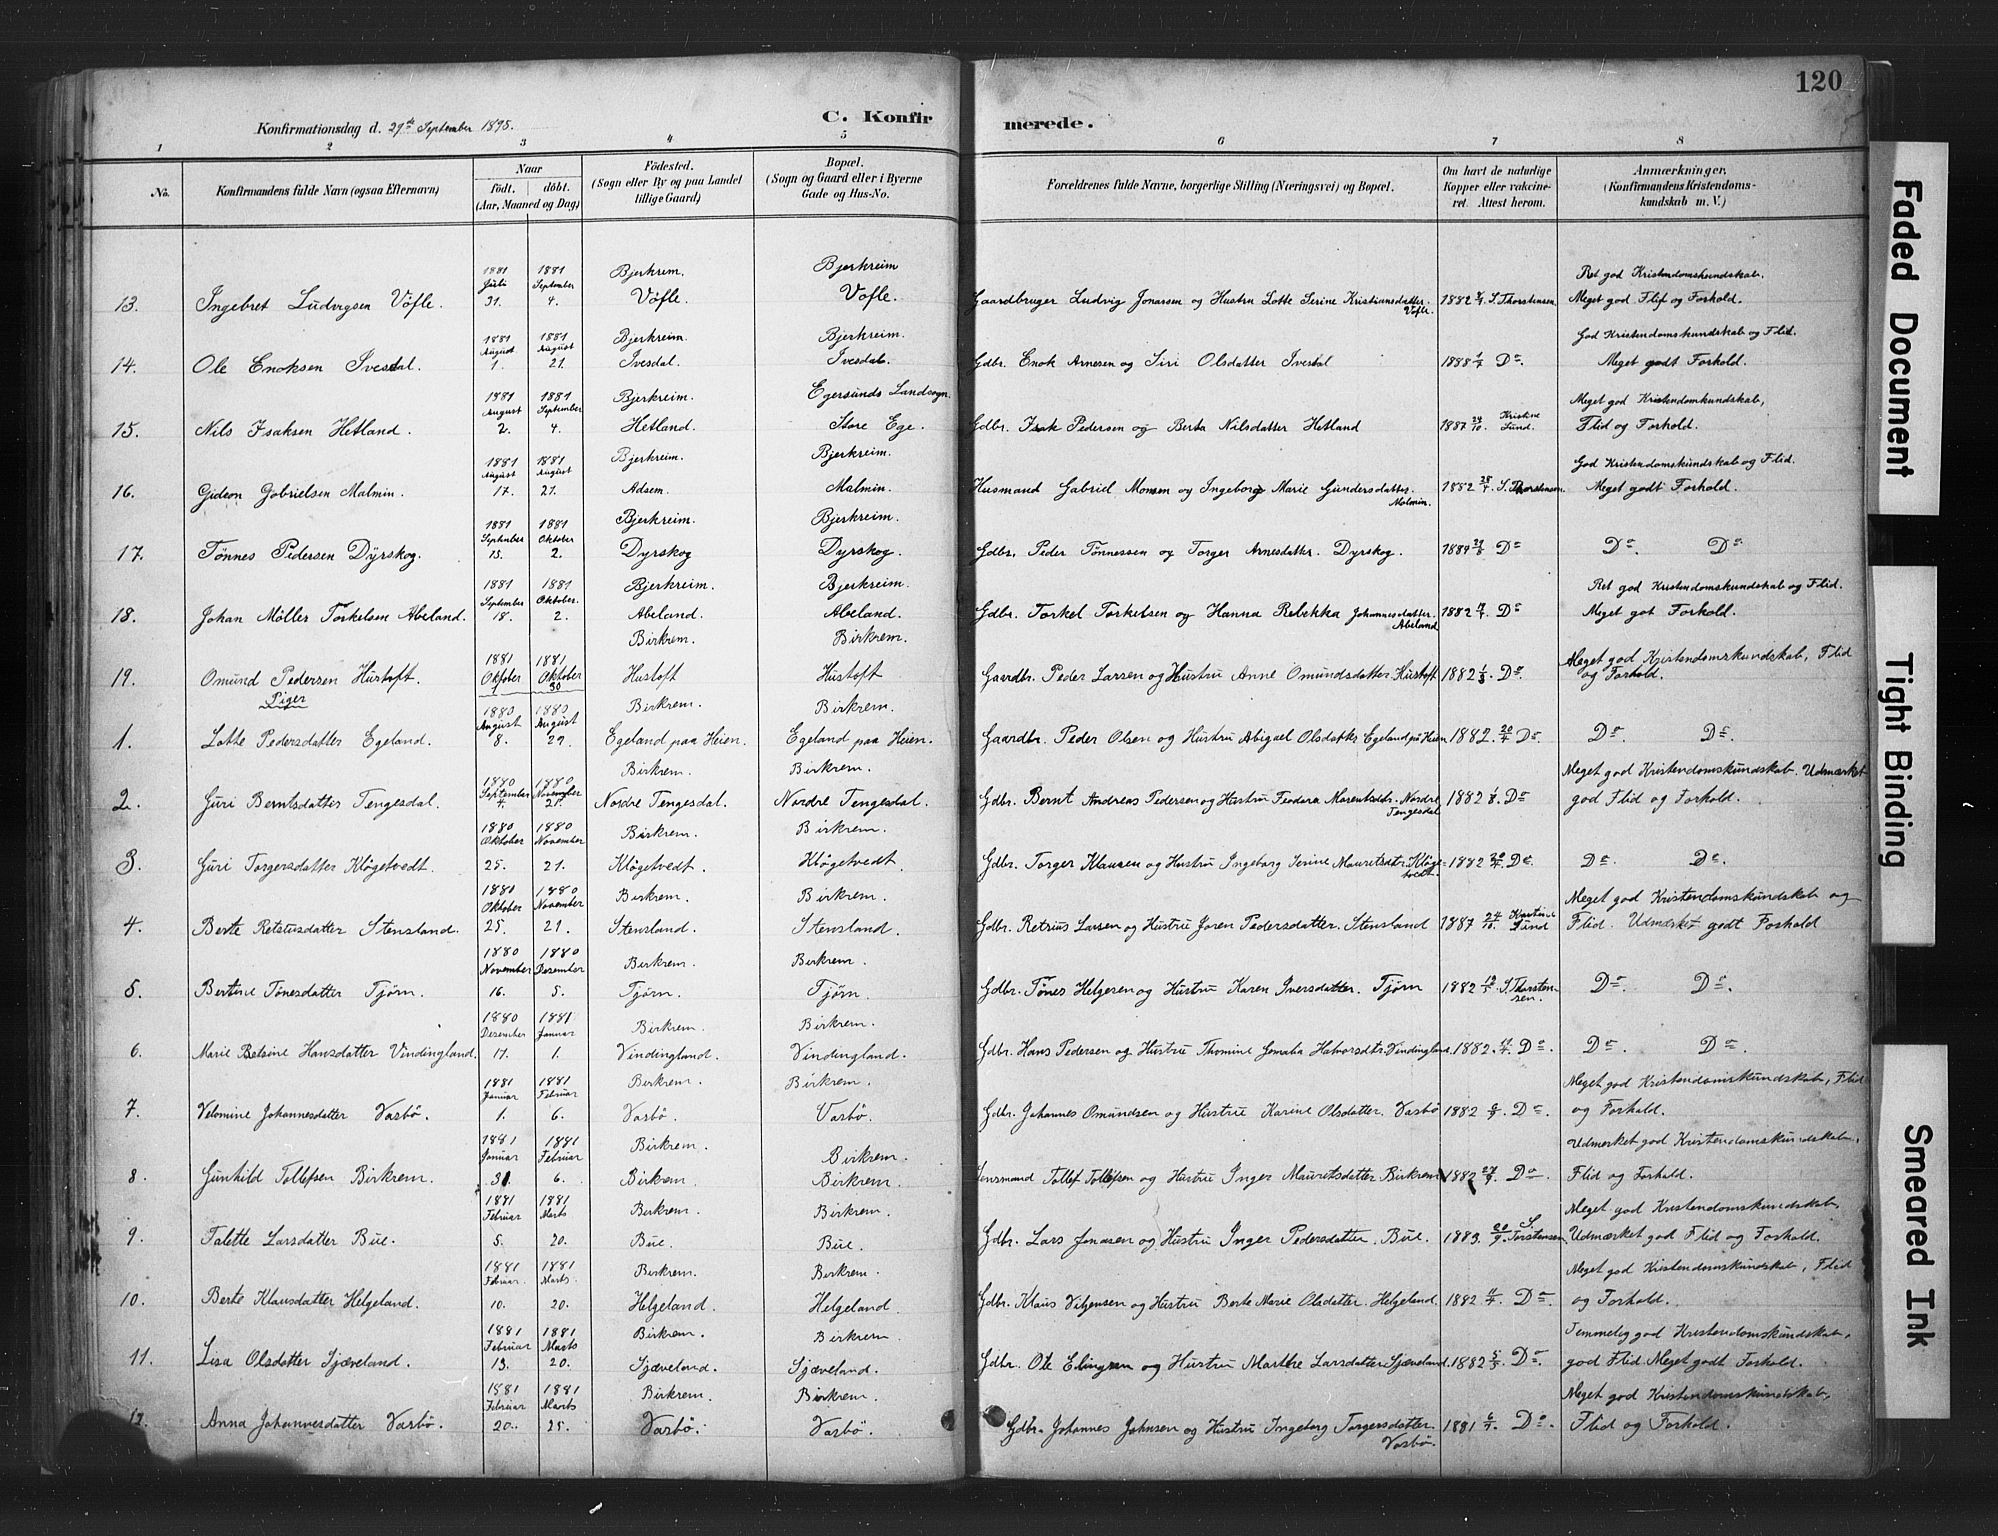 120
C. Konfirmerede.
Konfirmationsdag d. 29de September 1895.
1 2 3 4 5 6 7 8
No.
Konfirmandens fulde Navn (ogsaa Efternavn)
Naar
födt. döbt.
(Aar, Maaned og Dag)
Födested.
(Sogn eller By og paa Landet
tillige Gaard)
Bopæl.
(Sogn og Gaard eller i Byerne
Gade og Hus-No.
Forældrenes fulde Navne, borgerlige Stilling (Næringsvei) og Bopæl.
Om havt de naturlige
Kopper eller vakcine-
ret. Attest herom.
Anmærkninger.
(Konfirmandens Kristendoms-
kundskab m. V.)
1881 Juli 1881 September Bjerkrem. Bjerkreim Ret god Kristendomskundskab.
13. Ingebret Ludvigsen Vöfle. 31. 4. Vöfle. Vöfle. Gaardbruger Ludvig Jonassen og Hustru Lotte Serine Kristiansdatter Vöfle. 1882 S. Thorstensen. Meget god Flif og Forhold.
1881 August 1881 August Bjerkreim. Bjerkreim. God Kristendomskundskab og Flid.
14. Ole Enoksen Ivesdal. 1. 21. Ivesdal. Ivesdal. Gdbr. Enok Arnesen og Siri Olsdatter Ivesdal 1888 Do Meget godt Forhold.
1881 August 1881 September Bjerkreim. Egersunds Landsogn. Meget god Kristendomkundskab,
15. Nils Isaksen Hetland. 2. 4. Hetland. Store Ege. Gdbr. Isak Pedersen og Berta Nilsdatter Hetland 1887 24/10. Kristine Lund. Flid og Forhold.
1881 August 1881 August Bjerkreim. Bjerkreim. God Kristendomskundskab og Flid.
16. Gideon Gabrielsen Malmin. 17. 21. Adsem. Malmin. Husmand Gabriel Monsen og Ingeborg Marie Gundersdatter. Malmin. 1882 S. Thorstensen. Meget godt Forhold.
1881 September 1881 Oktober Bjerkreim. Bjerkreim.
17. Tönnes Pedersen Dÿrskog. 15. 2. Dyrskog Dyrskog. Gdbr. Peder Tönnessen og Torger Arnesdatter. Dyrskog. 1884 Do Do. Do.
1881 September 1881 Oktober. Bjerkreim. Bjerkreim. Ret god Kristendomskundskab og Flid.
18. Johan Möller Torkelsen Abeland. 18. 2. Abeland. Abeland. Gdbr. Torkel Torkelsen og Hanna Rebekka Johannesdatter. Abeland 1882 Do Meget got Forhold.
1881 Oktober 1881 Oktober 30 Birkrem. Birkrem. Meget god Kristendomskundskab, Flid
19. Omund Pedersen Hustoft. Hustoft Hustoft Gaardbr. Peder Larsen og Hustru Anne Omundsdatter Hustoft 1882 Do. og Forhold.
Piger
1880 August 1880 August Birkrem. Birkrem.
1. Lotte Pedersdatter Egeland. 8. 29. Egeland paa Heien. Egeland paa Heien. Gaardbr. Peder Olsen og Hustru Abigael Olsdatter Egeland på Heien 1882. Do Do. Do.
1880 September 1880 November Birkrem. Birkrem. Meget god Kristendomskundskab. Udmærket
2. Guri Berntsdatter Tengesdal. 4. 21. Nordre Tengesdal. Nordre Tengesdal. Gdbr. Bernt Andreas Pedersen og Hustru Feodora Marentsdtr. Nordre Tengesdal 1882 Do god Flid og Forhold.
1880 Oktober 1880 November Birkrem. Birkrem.
3. Guri Torgersdatter Kløgetvedt. 25. 21. Kløgetvedt. Kløgetvedt. Gdbr. Torger Klausen og Hustru Ingeborg Serine Mauritsdtr. Kløgetvedt. 1882 Do. Do. Do.
1880 Oktober 1880 November Birkrem. Birkrem. Meget god Kristendomskundskab og
4. Berte Retsiusdatter Stensland. 25. 21. Stensland. Stensland. Gdbr. Retsius Larsen og Hustru Joren Pedersdatter. Stensland 1887 24/10. Kristine Lund Flid. Udmærket godt Forhold
1880 November 1880 Dezember Birkrem. Birkrem.
5. Bertine Tönesdatter Tjörn. 16. 5. Tjörn. Tjörn. Gdbr. Tönes Helgesen og Hustru Karen Iversdatter. Tjörn 1882 S. Thorstensen. Do. Do.
1880 Dezember 1881 Januar Birkrem. Birkrem.
6. Marie Betsine Hansdatter Vindingland. 17. 1. Vindingland. Vindingland. Gdbr. Hans Pedersen og Hustru Thomine Jomalia Halvorsdtr. Vindingland. 1882. Do. Do. Do.
1881 Januar 1881 Februar Birkrem. Birkrem. Meget god Kristendomskundskab, Flid
7. Velomine Johannesdatter Vasbö. 1. 6. Vasbö. Vasbö. Gdbr. Johannes Omundsen og Hustru Karine Olsdatter. Vasbö 1882 Do. og Forhold.
1881 Januar 1881 Februar Birkrem. Birkrem. Udmerket god Kristendomskundskab,
8. Gunhild Tollefsen Birkrem. 31. 6. Birkrem. Birkrem. Lensmand Tollef Tollefsen og Hustru Inger Mauritsdatter Birkrem 1882 Do. Flid og Forhold.
1881 Februar 1881 Marts Birkrem. Birkrem. Meget god Kristendomskundskab,
9. Talette Larsdatter Bue. 5. 20. Bue. Bue. Gdbr. Lars Jonasen og Hustru Inger Pedersdatter. Bue. 1883. S. Torstensen. Udmærket god Flid og Forhold.
1881 Februar. 1881 Marts. Birkrem. Birkrem. Meget god Kristendomskundskab, Flid
10. Berte Klausdatter Helgeland. 10. 20. Helgeland. Helgeland. Gdbr. Klaus Viljensen og Hustru Berte Marie Olsdatter. Helgeland. 1882 Do. og Forhold.
1881 Februar 1881 Marts Birkrem. Birkrem. Temmelig god Kristendomskundskab,
11. Lisa Olsdatter Sjæveland. 13. 20. Sjæveland. Sjæveland. Gdbr. Ole Elingsen og Hustru Marthe Larsdatter Sjæveland. 1882 Do. god Flid Meget godt Forhold.
1881 Februar 1881 Marts. Birkrem. Birkrem. Meget god Kristendomskundskab,
12. Anna Johannesdatter Vasbö. 20. 25. Vasbö. Vasbö. Gdbr. Johannes Johnsen og Hustru Ingeborg Torgersdatter Vasbö. 1881 Do. Flid og Forhold.
Faded Document
Tight Binding
Smeared Ink